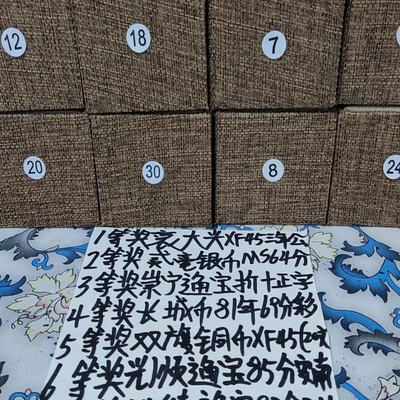 12
18
7
20
30
8
24
1等奖袁大头XF45三年公
2等奖贰毫银币MS64分
3等奖崇宁通宝折十正字
4等奖长城币81年69分彩
5等奖双旗铜币XF45
6等奖光顺通宝85分安南